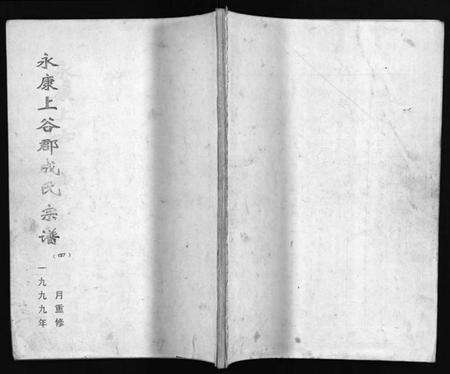 永康上谷郡成氏宗谱
（四）
一九九九年
月重修